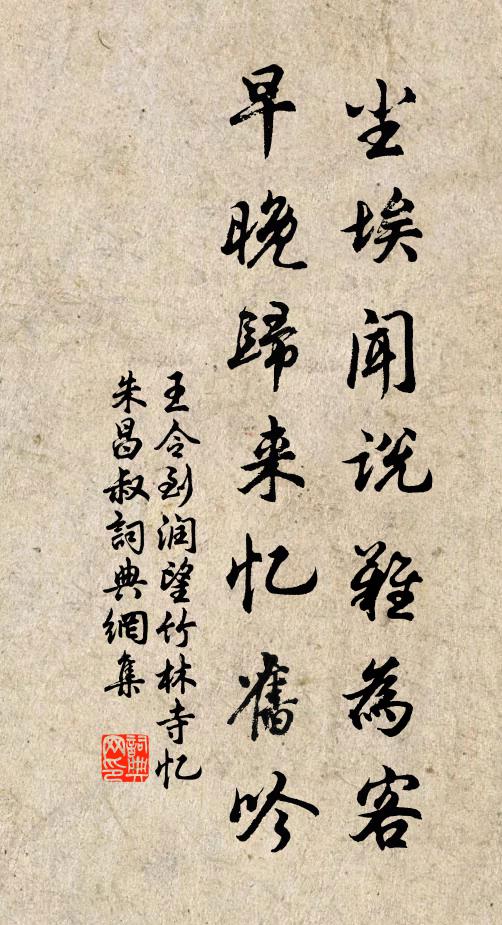 尘埃闻说難為客
早晚歸来忆舊吟
王令到润望竹林寺忆
朱昌叔詞典網集
詞典网印